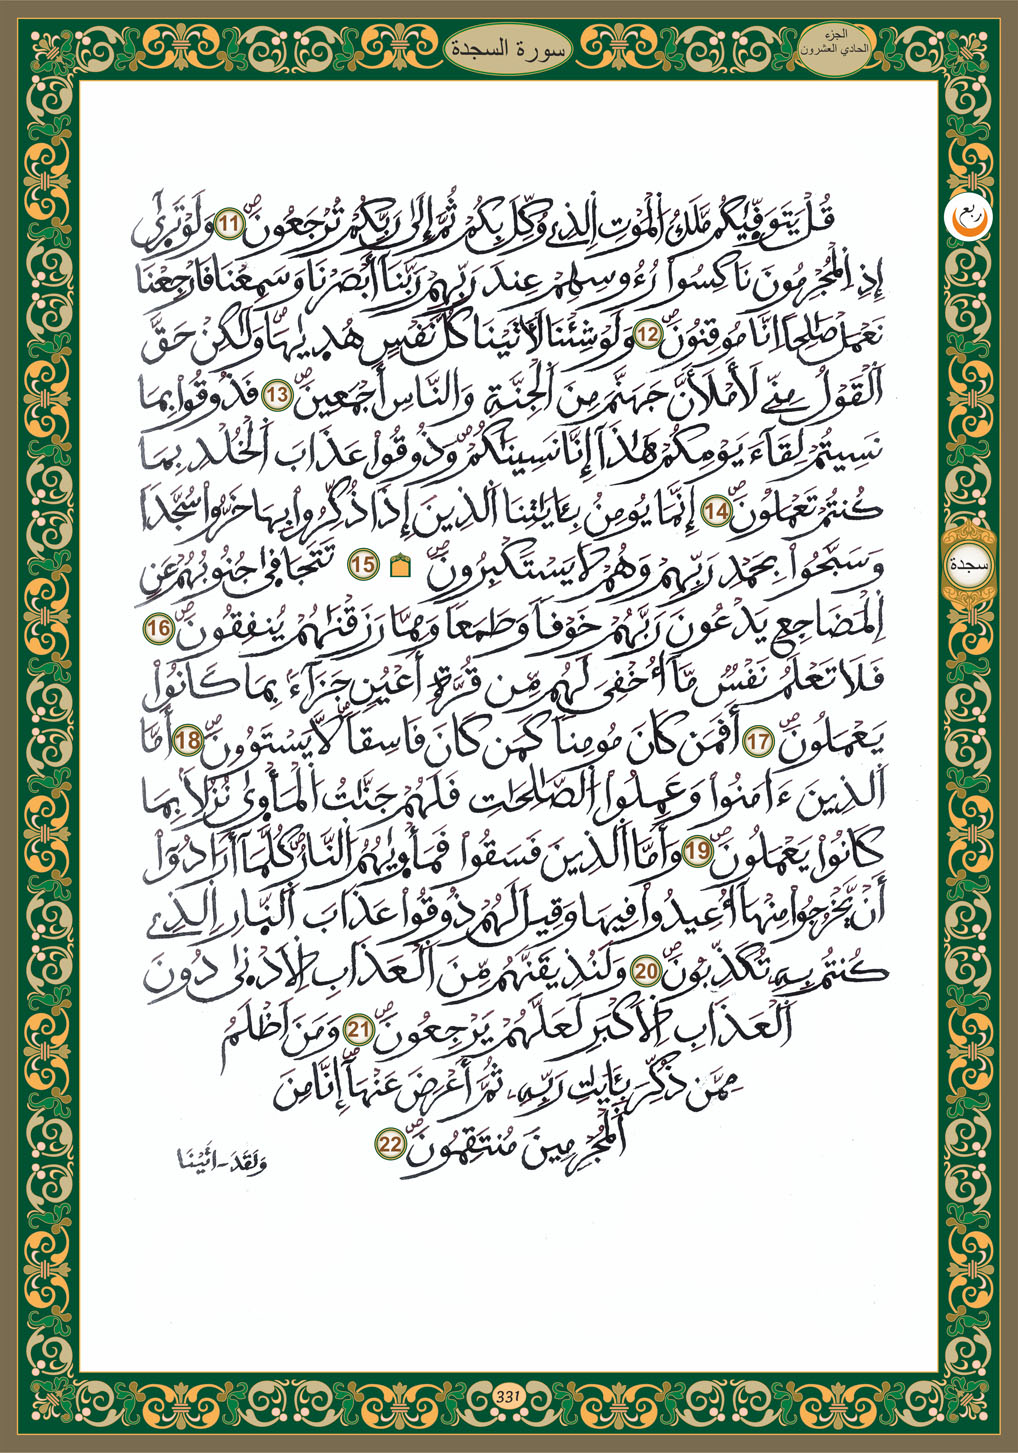 سورة السجدة
الجزء
الحادي العشرون
ربع
قُلْ يَتَوَفّ۪يٰكُم مَّلَكُ اُ۬لْمَوْتِ اِ۬لذِے وُكِّلَ بِكُمْ ثُمَّ إِلَيٰ رَبِّكُمْ تُرْجَعُونَۖ 11 وَلَوْ تَر۪يٰٓ
إِذِ اِ۬لْمُجْرِمُونَ نَاكِسُواْ رُءُوسِهِمْ عِندَ رَبِّهِمْ رَبَّنَآ أَبْصَرْنَا وَسَمِعْنَا فَارْجِعْنَا
نَعْمَلْ صَٰلِحاً اِنَّا مُوقِنُونَۖ 12 وَلَوْ شِئْنَا لَأٓتَيْنَا كُلَّ نَفْسٍ هُد۪يٰهَاۖ وَلَٰكِنْ حَقَّ
اَ۬لْقَوْلُ مِنِّے لَأَمْلَأَنَّ جَهَنَّمَ مِنَ اَ۬لْجِنَّةِ وَالنَّاسِ أَجْمَعِينَۖ 13 فَذُوقُواْ بِمَا
نَسِيتُمْ لِقَآءَ يَوْمِكُمْ هَٰذَآ إِنَّا نَسِينَٰكُمْۖ وَذُوقُواْ عَذَابَ اَ۬لْخُلْدِ بِمَا
كُنتُمْ تَعْمَلُونَۖ 14 إِنَّمَا يُومِنُ بِـَٔايَٰتِنَا اَ۬لذِينَ إِذَا ذُكِّرُواْ بِهَا خَرُّواْ سُجَّداٗ
وَسَبَّحُواْ بِحَمْدِ رَبِّهِمْ وَهُمْ لَا يَسْتَكْبِرُونَۖ 15 تَتَجَاف۪يٰ جُنُوبُهُمْ عَنِ
سجدة
اِ۬لْمَضَاجِعِ يَدْعُونَ رَبَّهُمْ خَوْفاٗ وَطَمَعاٗ وَمِمَّا رَزَقْنَٰهُمْ يُنفِقُونَۖ 16
فَلَا تَعْلَمُ نَفْسٞ مَّآ أُخْفِيَ لَهُم مِّن قُرَّةِ أَعْيُنٖ جَزَآءَۢ بِمَا كَانُواْ
يَعْمَلُونَۖ 17 أَفَمَن كَانَ مُومِناٗ كَمَن كَانَ فَاسِقاٗۖ لَّا يَسْتَوُۥنَۖ 18 أَمَّا
اَ۬لذِينَ ءَامَنُواْ وَعَمِلُواْ اُ۬لصَّٰلِحَٰتِ فَلَهُمْ جَنَّٰتُ اُ۬لْمَأْو۪يٰ نُزُلاَۢ بِمَا
كَانُواْ يَعْمَلُونَۖ 19 وَأَمَّا اَ۬لذِينَ فَسَقُواْ فَمَأْو۪يٰهُمُ اُ۬لنَّارُ كُلَّمَآ أَرَادُوٓاْ
أَنْ يَّخْرُجُواْ مِنْهَآ أُعِيدُواْ فِيهَا وَقِيلَ لَهُمْ ذُوقُواْ عَذَابَ اَ۬لنّ۪ارِ اِ۬لذِے
كُنتُم بِهِۦ تُكَذِّبُونَۖ 20 وَلَنُذِيقَنَّهُم مِّنَ اَ۬لْعَذَابِ اِ۬لْأَدْن۪يٰ دُونَ
اَ۬لْعَذَابِ اِ۬لْأَكْبَرِ لَعَلَّهُمْ يَرْجِعُونَۖ 21 وَمَنَ اَظْلَمُ
مِمَّن ذُكِّرَ بِـَٔايَٰتِ رَبِّهِۦ ثُمَّ أَعْرَضَ عَنْهَآۖ إِنَّا مِنَ
اَ۬لْمُجْرِمِينَ مُنتَقِمُونَۖ 22
وَلَقَدَ - اتَيْنَا
331